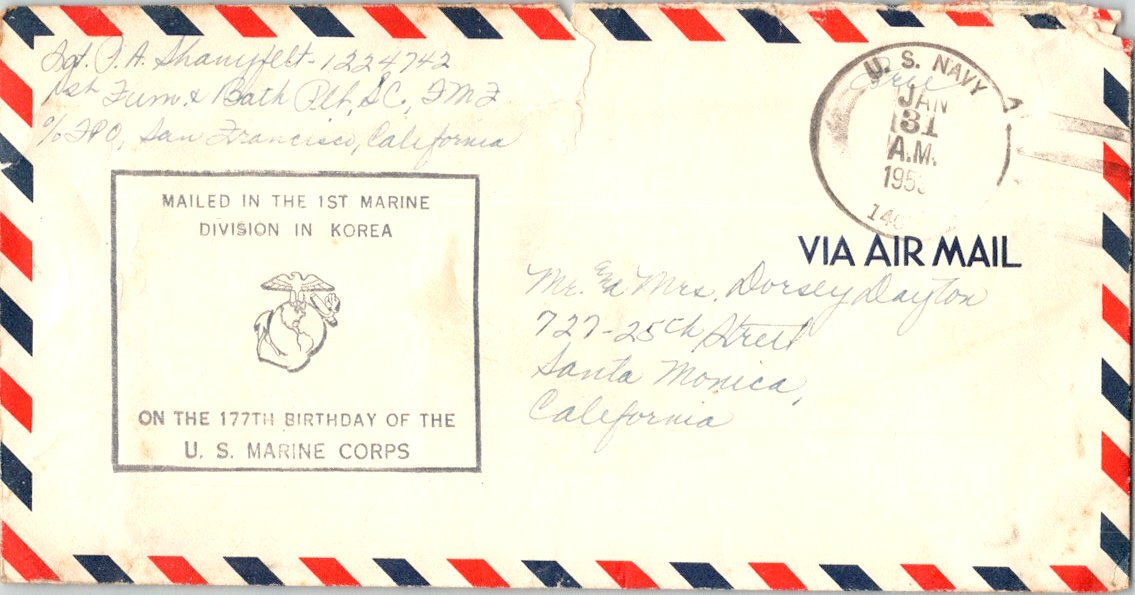 Sgt. P. A. Shanyfelt - 1224742
1st Fum. & Bath Plt, SC, FMF
c/o FPO, San Francisco, California
Free
U. S. NAVY
JAN
31
A.M.
MAILED IN THE 1ST MARINE
DIVISION IN KOREA
ON THE 177TH BIRTHDAY OF THE
U. S. MARINE CORPS
VIA AIR MAIL
Mr. and Mrs. Dorsey Dayton
727-25th Street
Santa Monica,
California